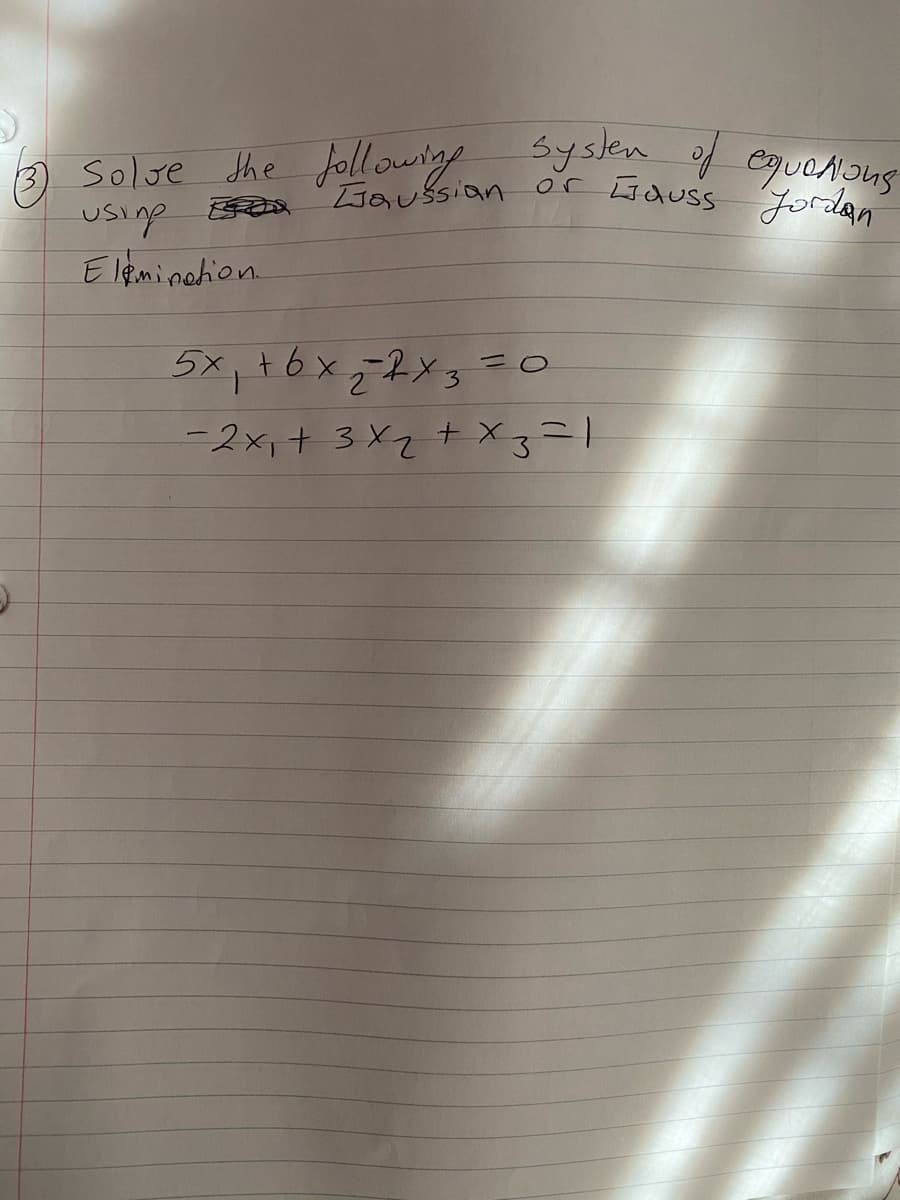 ③ Solve the following system of equations
using Gaussian or Gauss Jordan
Elemination.
5x₁ + 6x₂ - 2x₃ = 0
-2x₁ + 3x₂ + x₃ = 1